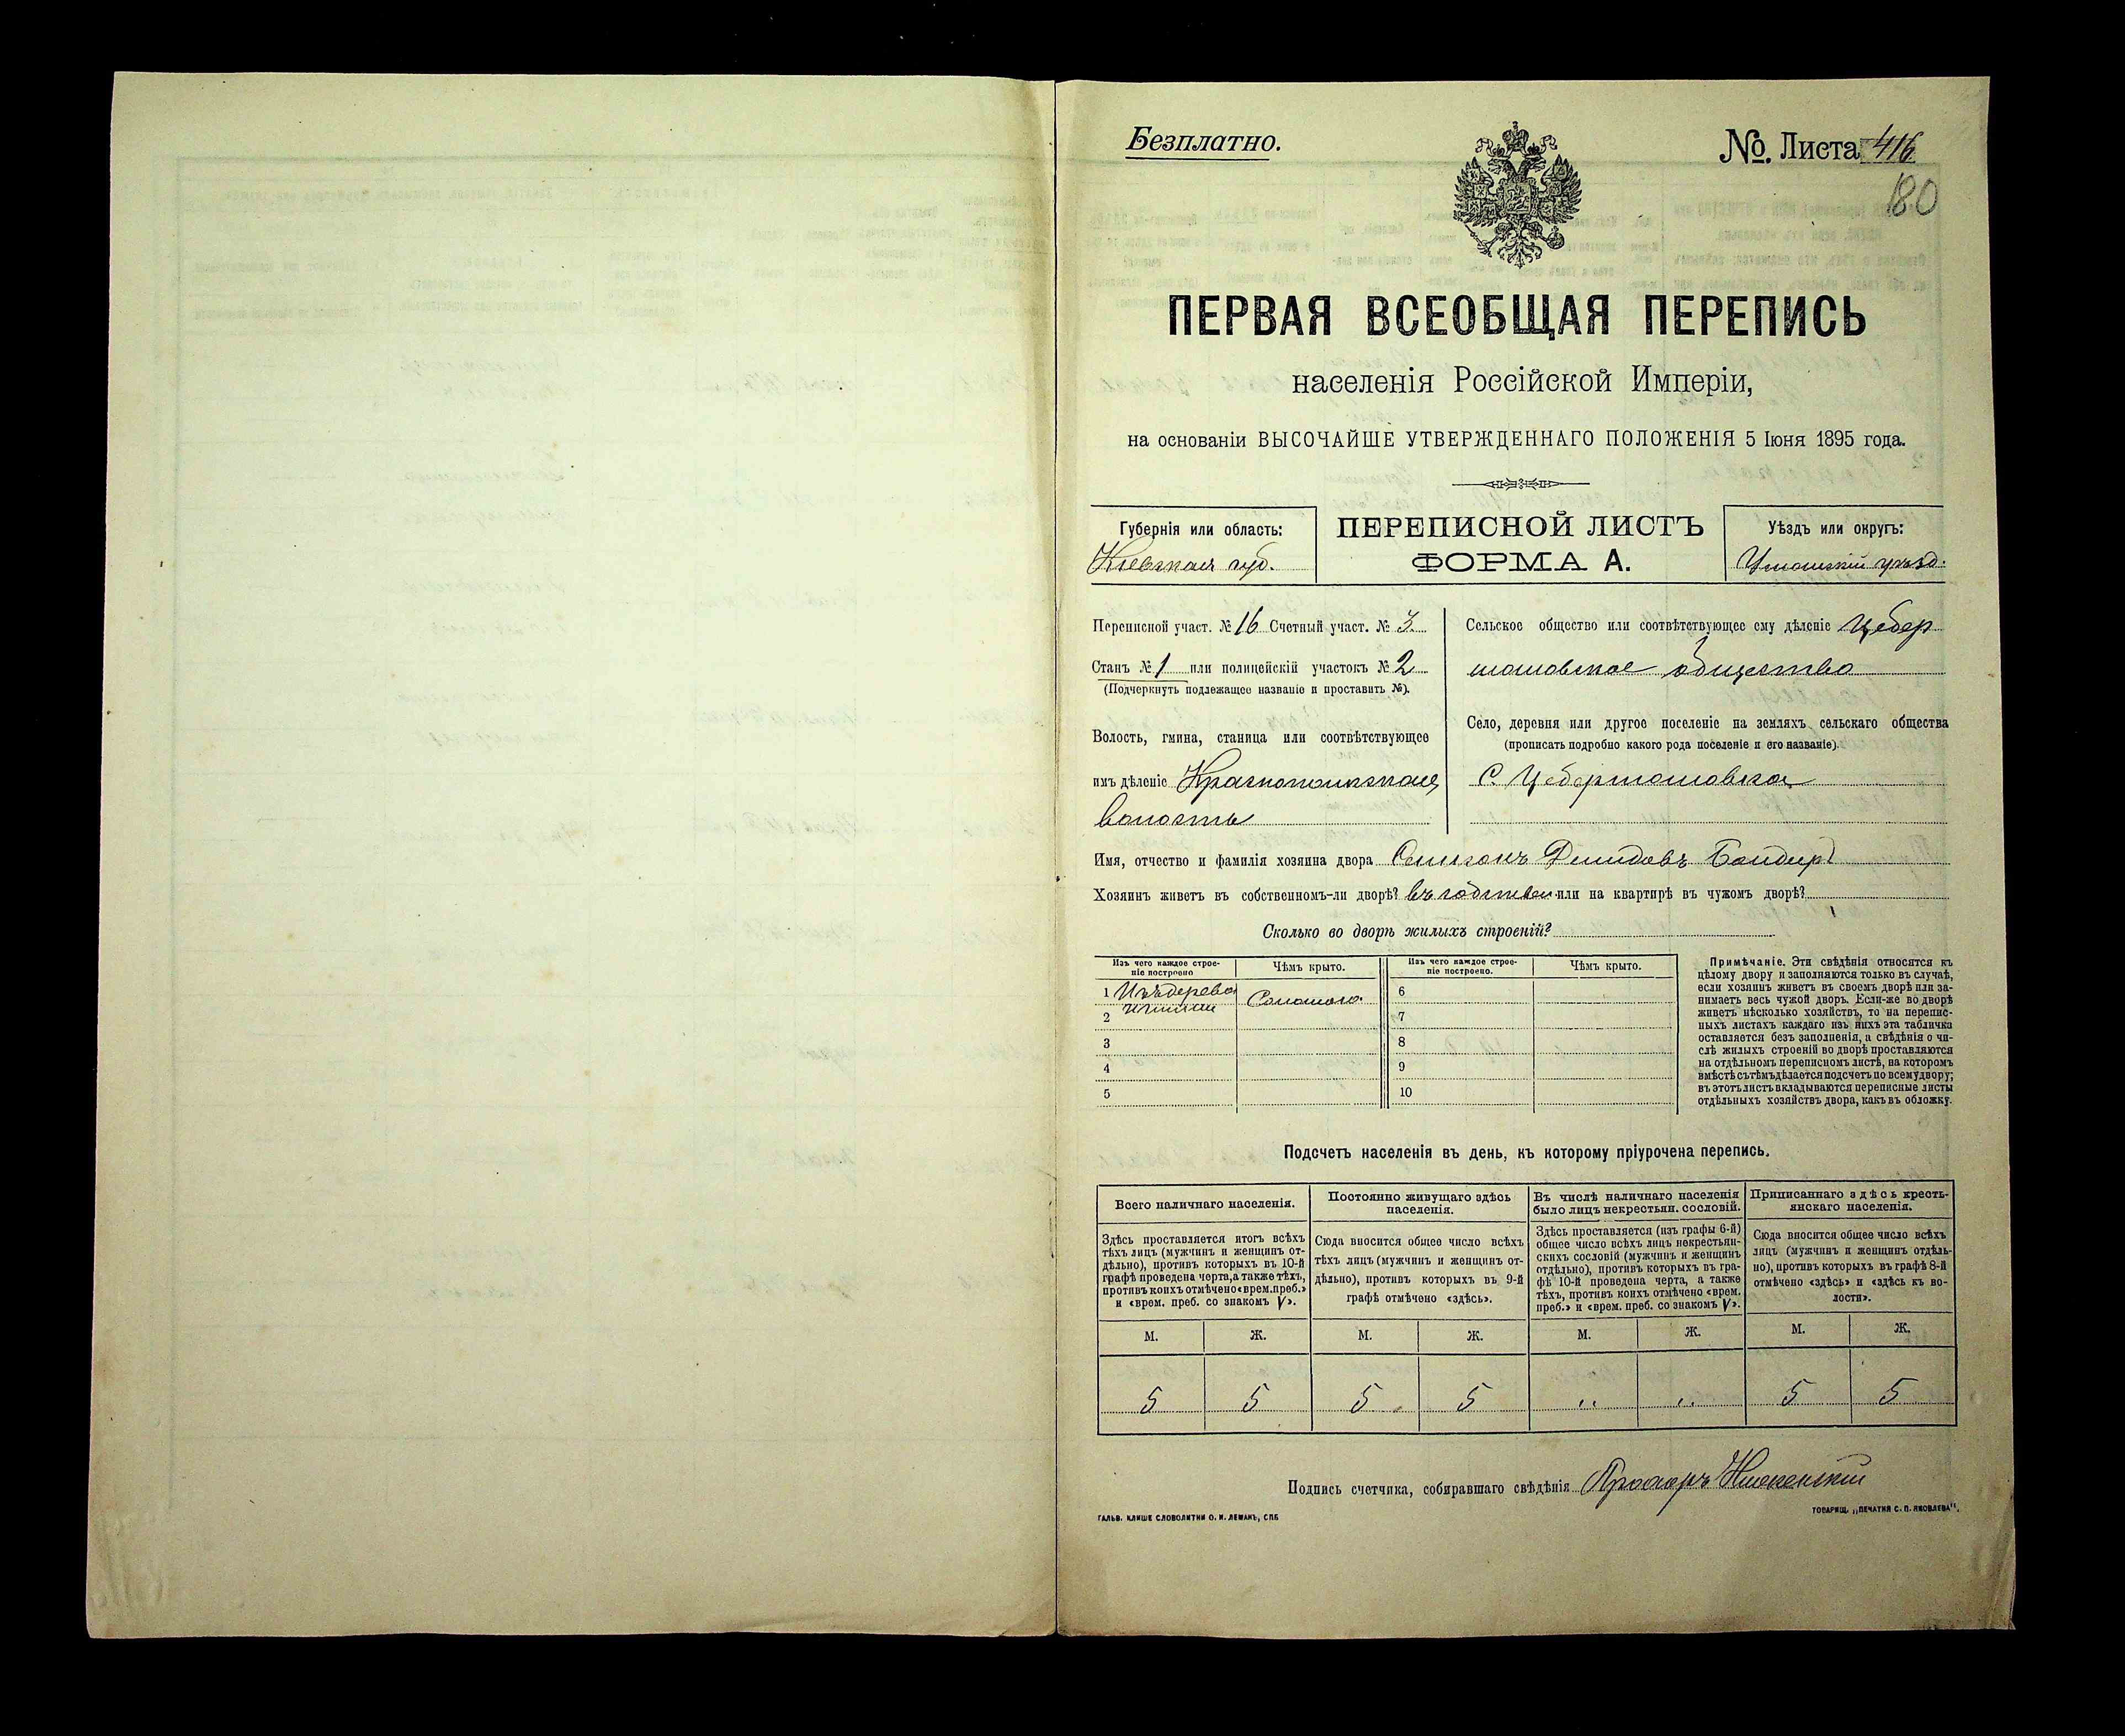 Безплатно.
№. Листа 416
180
ПЕРВАЯ ВСЕОБЩАЯ ПЕРЕПИСЬ
населенія Россійской Имперіи,
на основаніи ВЫСОЧАЙШЕ УТВЕРЖДЕННАГО ПОЛОЖЕНІЯ 5 Іюня 1895 года.
Губернія или область:
Кіевская губ.
ПЕРЕПИСНОЙ ЛИСТЪ
ФОРМА А.
Уѣздъ или округъ:
Уманскій уѣзд.
Переписной участ. № 16 Счетный участ. № 3
Станъ № 1 или полицейскій участокъ № 2
(Подчеркнуть подлежащее названіе и проставить №).
Волость, гмина, станица или соотвѣтствующее
имъ дѣленіе Краснопольская
волость
Сельское общество или соотвѣтствующее ему дѣленіе Цебер
мановское общество
Село, деревня или другое поселеніе на земляхъ сельскаго общества
(прописать подробно какого рода поселеніе и его названіе).
С. Цебермановка
Имя, отчество и фамилія хозяина двора Демидовъ
Хозяинъ живетъ въ собственномъ-ли дворѣ? въ собствен. или на квартирѣ въ чужомъ дворѣ?
Сколько во дворѣ жилыхъ строеній?
Изъ чего каждое строе-
ніе построено
Чѣмъ крыто.
Изъ чего каждое строе-
ніе построено.
Чѣмъ крыто.
1 Изъ дерева
и глины
Соломою
2
3
4
5
6
7
8
9
10
Примѣчаніе. Эти свѣдѣнія относятся къ
цѣлому двору и заполняются только въ случаѣ,
если хозяинъ живетъ въ своемъ дворѣ или за-
нимаетъ весь чужой дворъ. Если-же во дворѣ
живетъ нѣсколько хозяйствъ, то на перепис-
ныхъ листахъ каждаго изъ нихъ эта табличка
оставляется безъ заполненія, а свѣдѣнія о чи-
слѣ жилыхъ строеній во дворѣ проставляются
на отдѣльномъ переписномъ листѣ, на которомъ
вмѣстѣ съ тѣмъ дѣлается подсчетъ по всему двору;
въ этотъ листъ вкладываются переписные листы
отдѣльныхъ хозяйствъ двора, какъ въ обложку.
Подсчетъ населенія въ день, къ которому пріурочена перепись.
Всего наличнаго населенія.
Здѣсь проставляется итогъ всѣхъ
тѣхъ лицъ (мужчинъ и женщинъ от-
дѣльно), противъ которыхъ въ 10-й
графѣ проведена черта, а также тѣхъ,
противъ коихъ отмѣчено «врем. преб.»
и «врем. преб. со знакомъ V».
Постоянно живущаго здѣсь
населенія.
Сюда вносится общее число всѣхъ
тѣхъ лицъ (мужчинъ и женщинъ от-
дѣльно), противъ которыхъ въ 9-й
графѣ отмѣчено «здѣсь».
Въ числѣ наличнаго населенія
было лицъ некрестьян. сословій.
Здѣсь проставляется (изъ графы 6-й)
общее число всѣхъ лицъ некрестьян-
скихъ сословій (мужчинъ и женщинъ
отдѣльно), противъ которыхъ въ гра-
фѣ 10-й проведена черта, а также
тѣхъ, противъ коихъ отмѣчено «врем.
преб.» и «врем. преб. со знакомъ V».
Приписаннаго здѣсь кресть-
янскаго населенія.
Сюда вносится общее число всѣхъ
лицъ (мужчинъ и женщинъ отдѣль-
но), противъ которыхъ въ графѣ 8-й
отмѣчено «здѣсь» и «здѣсь къ во-
лости».
М. Ж. М. Ж. М. Ж. М. Ж.
5 5 5 5 „ „ 5 5
Подпись счетчика, собиравшаго свѣдѣнія Прохоръ
ГАЛЬВ. КЛИШЕ СЛОВОЛИТНИ О. И. ЛЕМАНЪ, СПБ
ТОВАРИЩ. „ПЕЧАТНЯ С. П. ЯКОВЛЕВА".